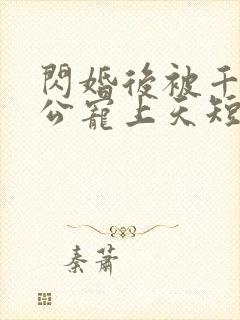 閃婚後被千
公寵上天短
秦蕭